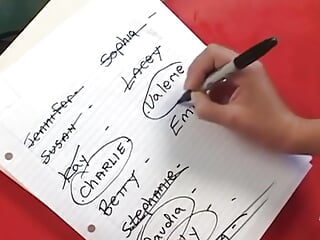 Jennifer
Susan
Kay
Charlie
Betty
Stephanie
Claudia
Sophia
Lacey
Valerie
Em